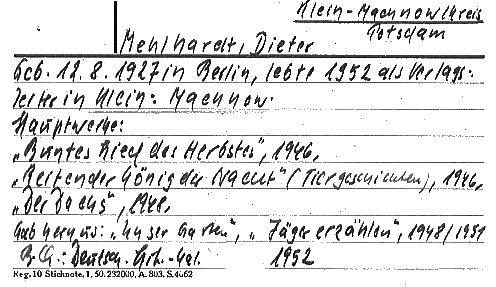 Klein-Machnow/Kreis
Potsdam
Mehlhardt, Dieter
Geb. 12.8.1927 in Berlin, lebte 1952 als Verlags-
leiter in Klein-Machnow.
Hauptwerke:
„Buntes Lied des Herbstes", 1946,
„Reitender König der Nacht" (Tiergeschichten), 1946,
„Der Dachs", 1948,
Gab heraus: „Unser Garten", „Jäger erzählen", 1948/1951
Deutsch. 1952
Reg. 10 Stichnote. 1. 50. 232000. A. 803. S. 4662